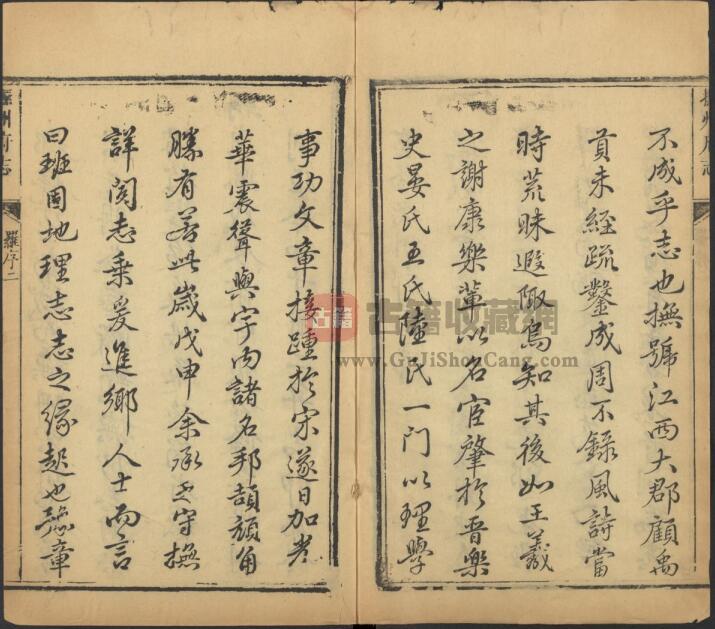 不成乎志也撫號江西大郡顧禹
貢未經疏鑿成周不錄風詩當
時荒昧遐陬烏知其後如王羲
之謝康樂輩以名宦肇於晉樂
史晏氏王氏陸氏一門以理學
事功文章接踵於宋遂日加炭
華震聲與宇內諸名邦頡頏角
勝有若此歲戊申余承乏守撫
詳閱志乘爰進鄉人士而言
曰班固地理志志之緣起也豫章
撫州府志
羅序二
古籍收藏网
www.GuJiShouCang.com